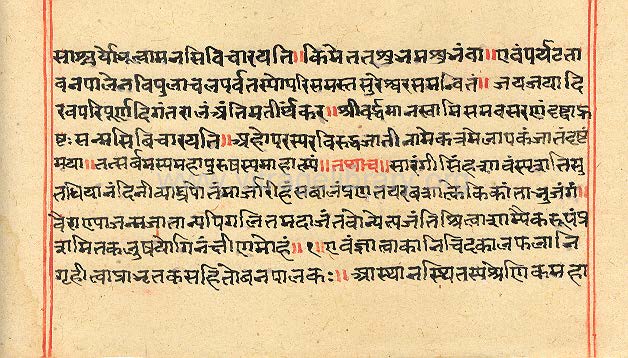 साश्चर्योभूत्वामनसिविचारयति॥किमेतत्शुभमशुभंवा॥एवंपर्यटता
वनपालेनविपुलाचलपर्वतस्योपरिसमस्तसुरेश्वरसमन्वितं॥जयजयादि
रवपरिपूर्णदिगंतरालंअंतिमतीर्थकर॥श्रीवर्द्धमानस्वामिसमवसरणंदृष्ट्वाहृ
ष्टःसन्मनसिविचारयति॥अहोपरस्परविरुद्धजातीनामेकत्रमेलापकंजातंदृष्टं
मया॥तत्सर्वमस्यमहापुरुषस्यमाहात्म्यं॥तथाच॥सारंगीसिंहशावंस्पृशतिसु
तधियानंदिनीव्याघ्रपोतंमार्जारीहंसबालंप्रणयपरवशाकेकिकांताभुजंगं
वैराण्याजन्मजातान्यपिगलितमदाजंतवोन्येत्यजंतिश्रित्वासाम्यैकरूढंप्र
शमितकलुषंयोगिनंक्षीणमोहं॥१॥एवंज्ञात्वाकानिचिदकालफलानि
गृहीत्वाप्राभृतकसहितोवनपालकः॥आस्थानस्थितस्यश्रेणिकमहा